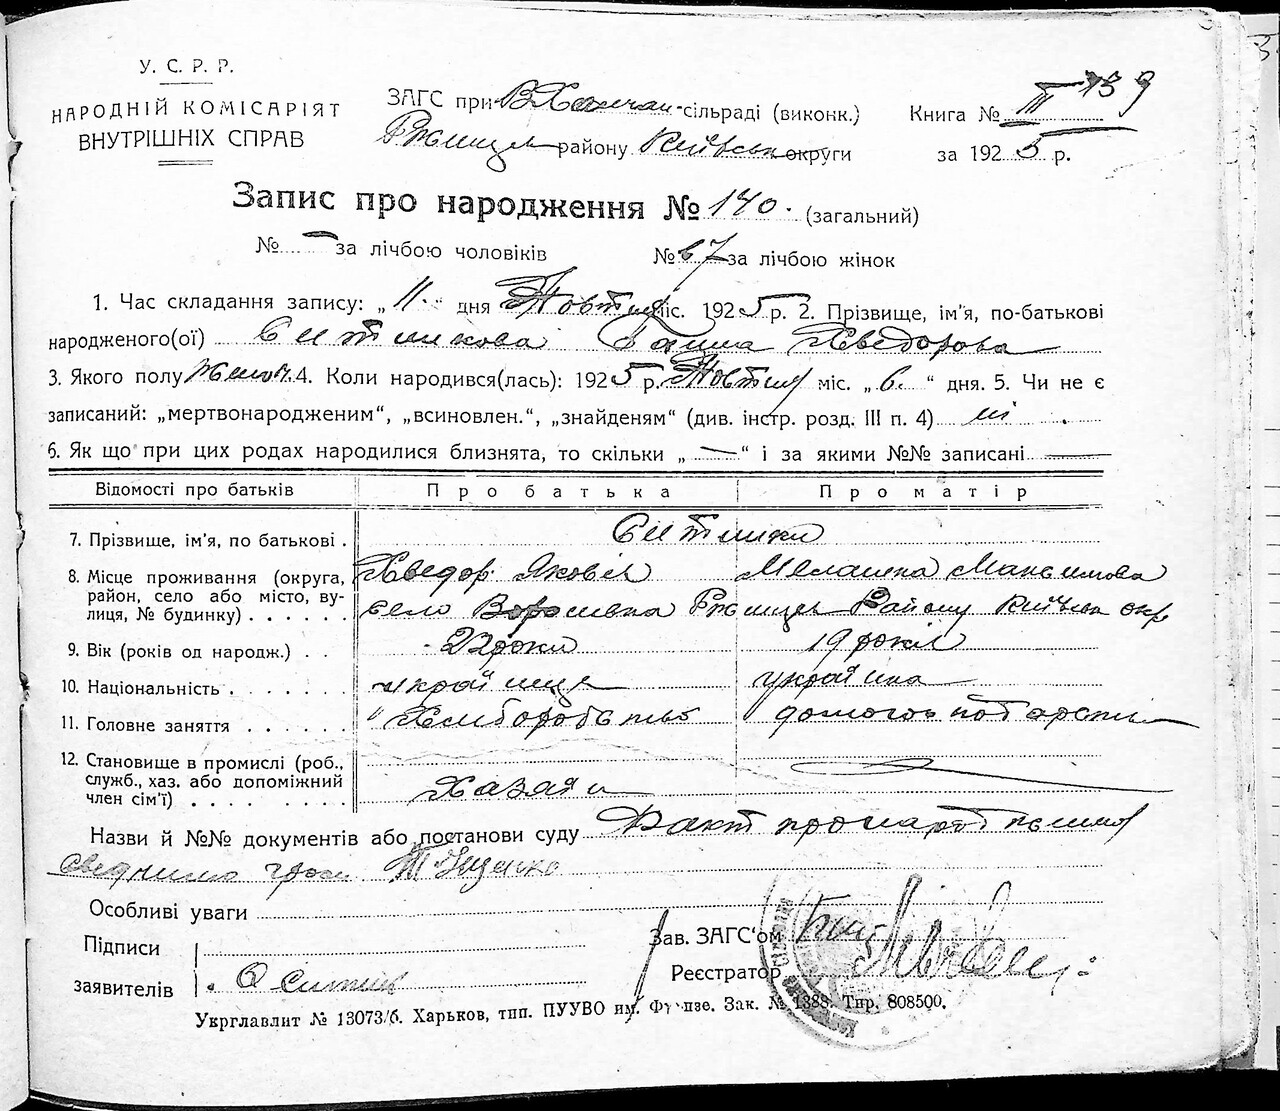 У. С. Р. Р.
НАРОДНІЙ КОМІСАРІЯТ
ВНУТРІШНІХ СПРАВ
ЗАГС при сільраді (виконк.)
району Київськ округи
Книга № III 139
за 1925 р.
Запис про народження № 140. (загальний)
№ — за лічбою чоловіків № 67 за лічбою жінок
1. Час складання запису: „ 11 " дня Жовтня міс. 1925 р. 2. Прізвище, ім'я, по-батькові
народженого(ої) Ситникова Ганна Хведорова
3. Якого полу Жіноч. 4. Коли народився(лась): 1925 р. Жовтня міс. „ 6. " дня. 5. Чи не є
записаний: „мертвонародженим", „всиновлен.", „знайденям" (див. інстр. розд. III п. 4) ні.
6. Як що при цих родах народилися близнята, то скільки „ — " і за якими №№ записані —
Відомості про батьків Про батька Про матір
7. Прізвище, ім'я, по батькові . Ситники
8. Місце проживання (округа, Хведор Яковів Мелашка Максимова
район, село або місто, ву-
лиця, № будинку) . . . . . . село Району Київськ окр
9. Вік (років од народж.) . . 22 роки 19 років
10. Національність . . . . . . . україниця українка
11. Головне заняття . . . . . . Хліборобство домогосподарств
12. Становище в промислі (роб.,
служб., хаз. або допоміжний
член сім'ї) . . . . . . . . . Хазяін
Назви й №№ документів або постанови суду Факт
гром. Іщенко
Особливі уваги
Підписи
заявителів
Зав. ЗАГС'ом
Реєстратор
Укрглавлит № 13073/б. Харьков, тип. ПУУВО им. Фрунзе. Зак. № 1388. Тир. 808500.